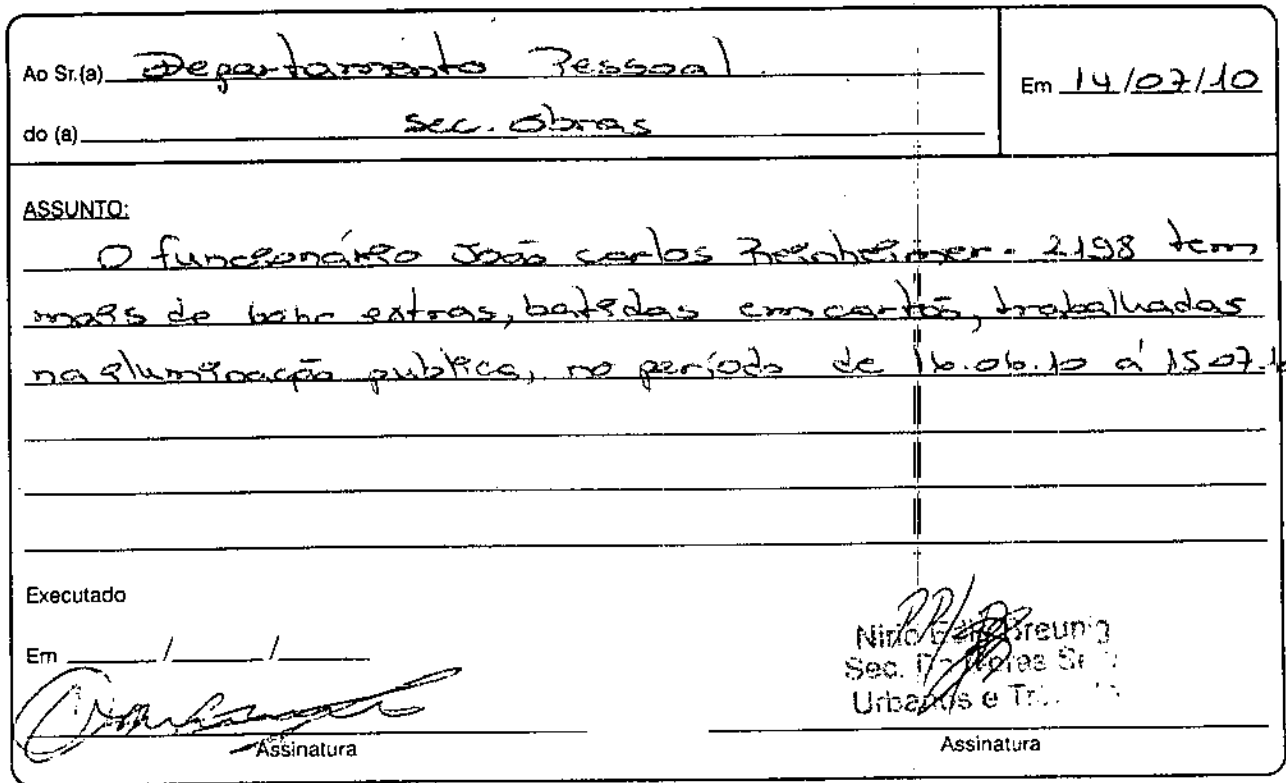 Ao Sr.(a) Departamento Pessoal
Em 14/07/10
do (a) sec. obras
ASSUNTO:
O funcionário João carlos Reinheimer - 2198 tem
mais de extras, batidas em cartão, trabalhadas
na iluminação publica, no período de 16.06.10 á 15.07.10
Executado
Em / /
Assinatura
Nirio Breunig
Sec. De
Urbanos e
Assinatura